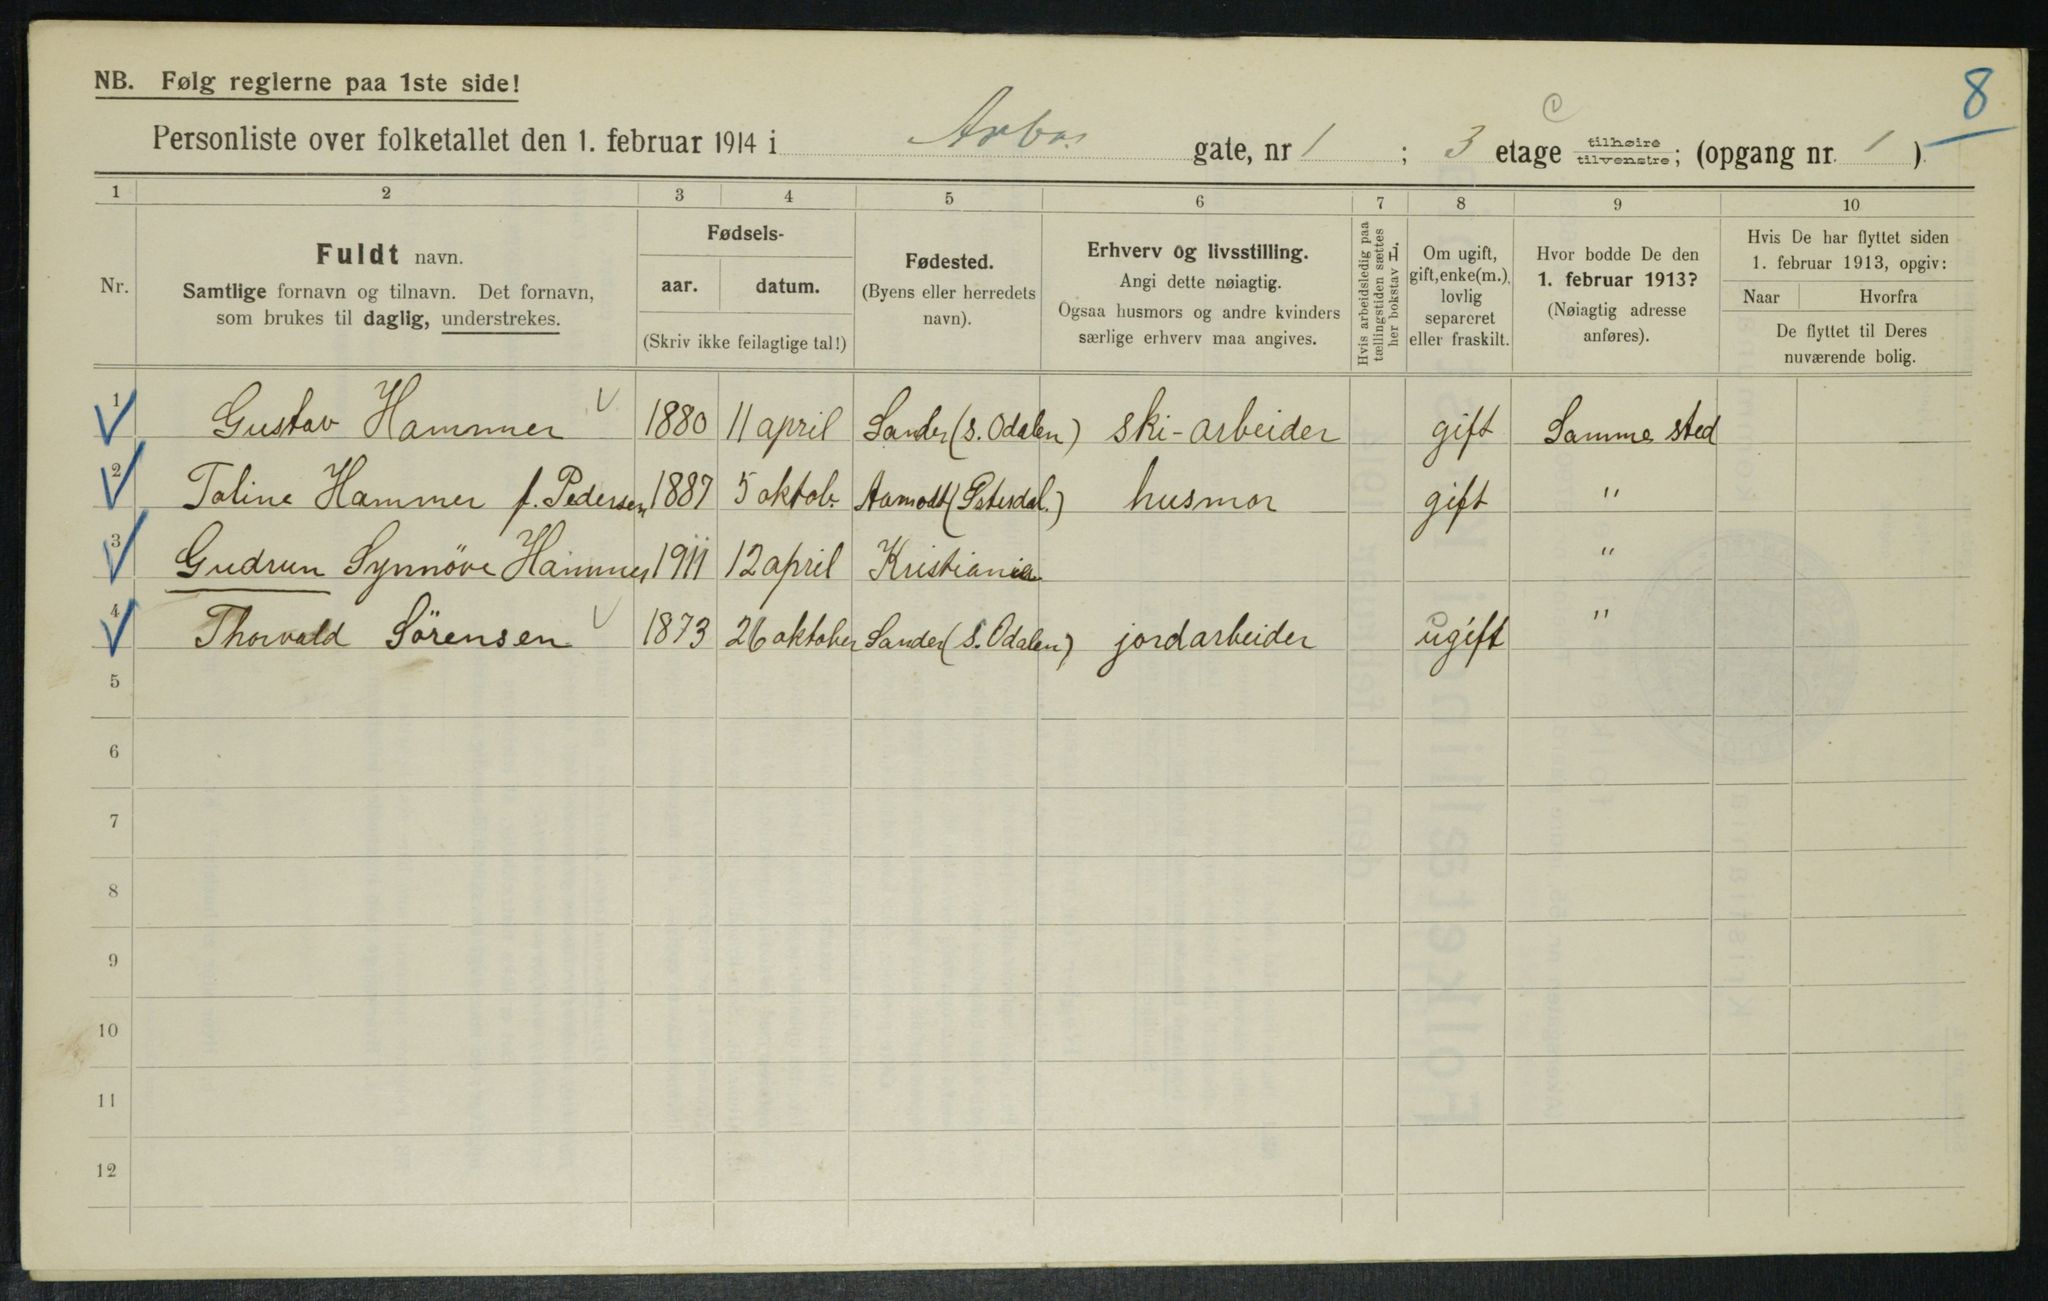 NB. Følg reglerne paa 1ste side!
8
C
Personliste over folketallet den 1. februar 1914 i Arbos gate, nr 1 ; 3 etage tilhøire tilvenstre; (opgang nr. 1 ).
1 2 3 4 5 6 7 8 9 10
Nr.
Fuldt navn.
Samtlige fornavn og tilnavn. Det fornavn,
som brukes til daglig, understrekes.
Fødsels-
aar. datum.
(Skriv ikke feilagtige tal!)
Fødested.
(Byens eller herredets
navn).
Erhverv og livsstilling.
Angi dette nøiagtig.
Ogsaa husmors og andre kvinders
særlige erhverv maa angives.
Hvis arbeidsledig paa
tællingstiden sættes
her bokstav L.
Om ugift,
gift, enke(m.),
lovlig
separeret
eller fraskilt.
Hvor bodde De den
1. februar 1913?
(Nøiagtig adresse
anføres).
Hvis De har flyttet siden
1. februar 1913, opgiv:
Naar Hvorfra
De flyttet til Deres
nuværende bolig.
1 Gustav Hammer 1880 11 april Sander (S. Odalen) ski-arbeider gift Samme sted
2 Taline Hammer f. Pedersen 1887 5 oktob. Aamodt husmor gift "
3 Gudrun Synnöve Hammer 1911 12 april Kristiania "
4 Thorvald Sörensen 1873 26 oktober Sander (S. Odalen) jordarbeider ugift "
5
6
7
8
9
10
11
12